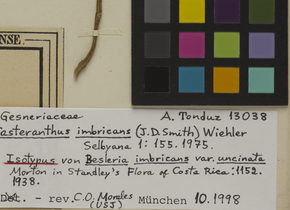 NSE.
Gesneriaceae A. Tonduz 13038
Gasteranthus imbricans (J.D. Smith) Wiehler
Selbyana 1: 155. 1975.
Isotypus von Besleria imbricans var. uncinata
Morton in Standley's Flora of Costa Rica: 1152.
1938.
Det. - rev. C.O. Morales München 10. 1998
(USJ)